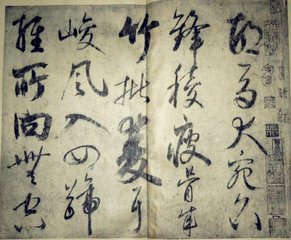 胡馬大宛名
鋒稜瘦骨成
竹批雙耳
峻風入四蹄
輕所向無空